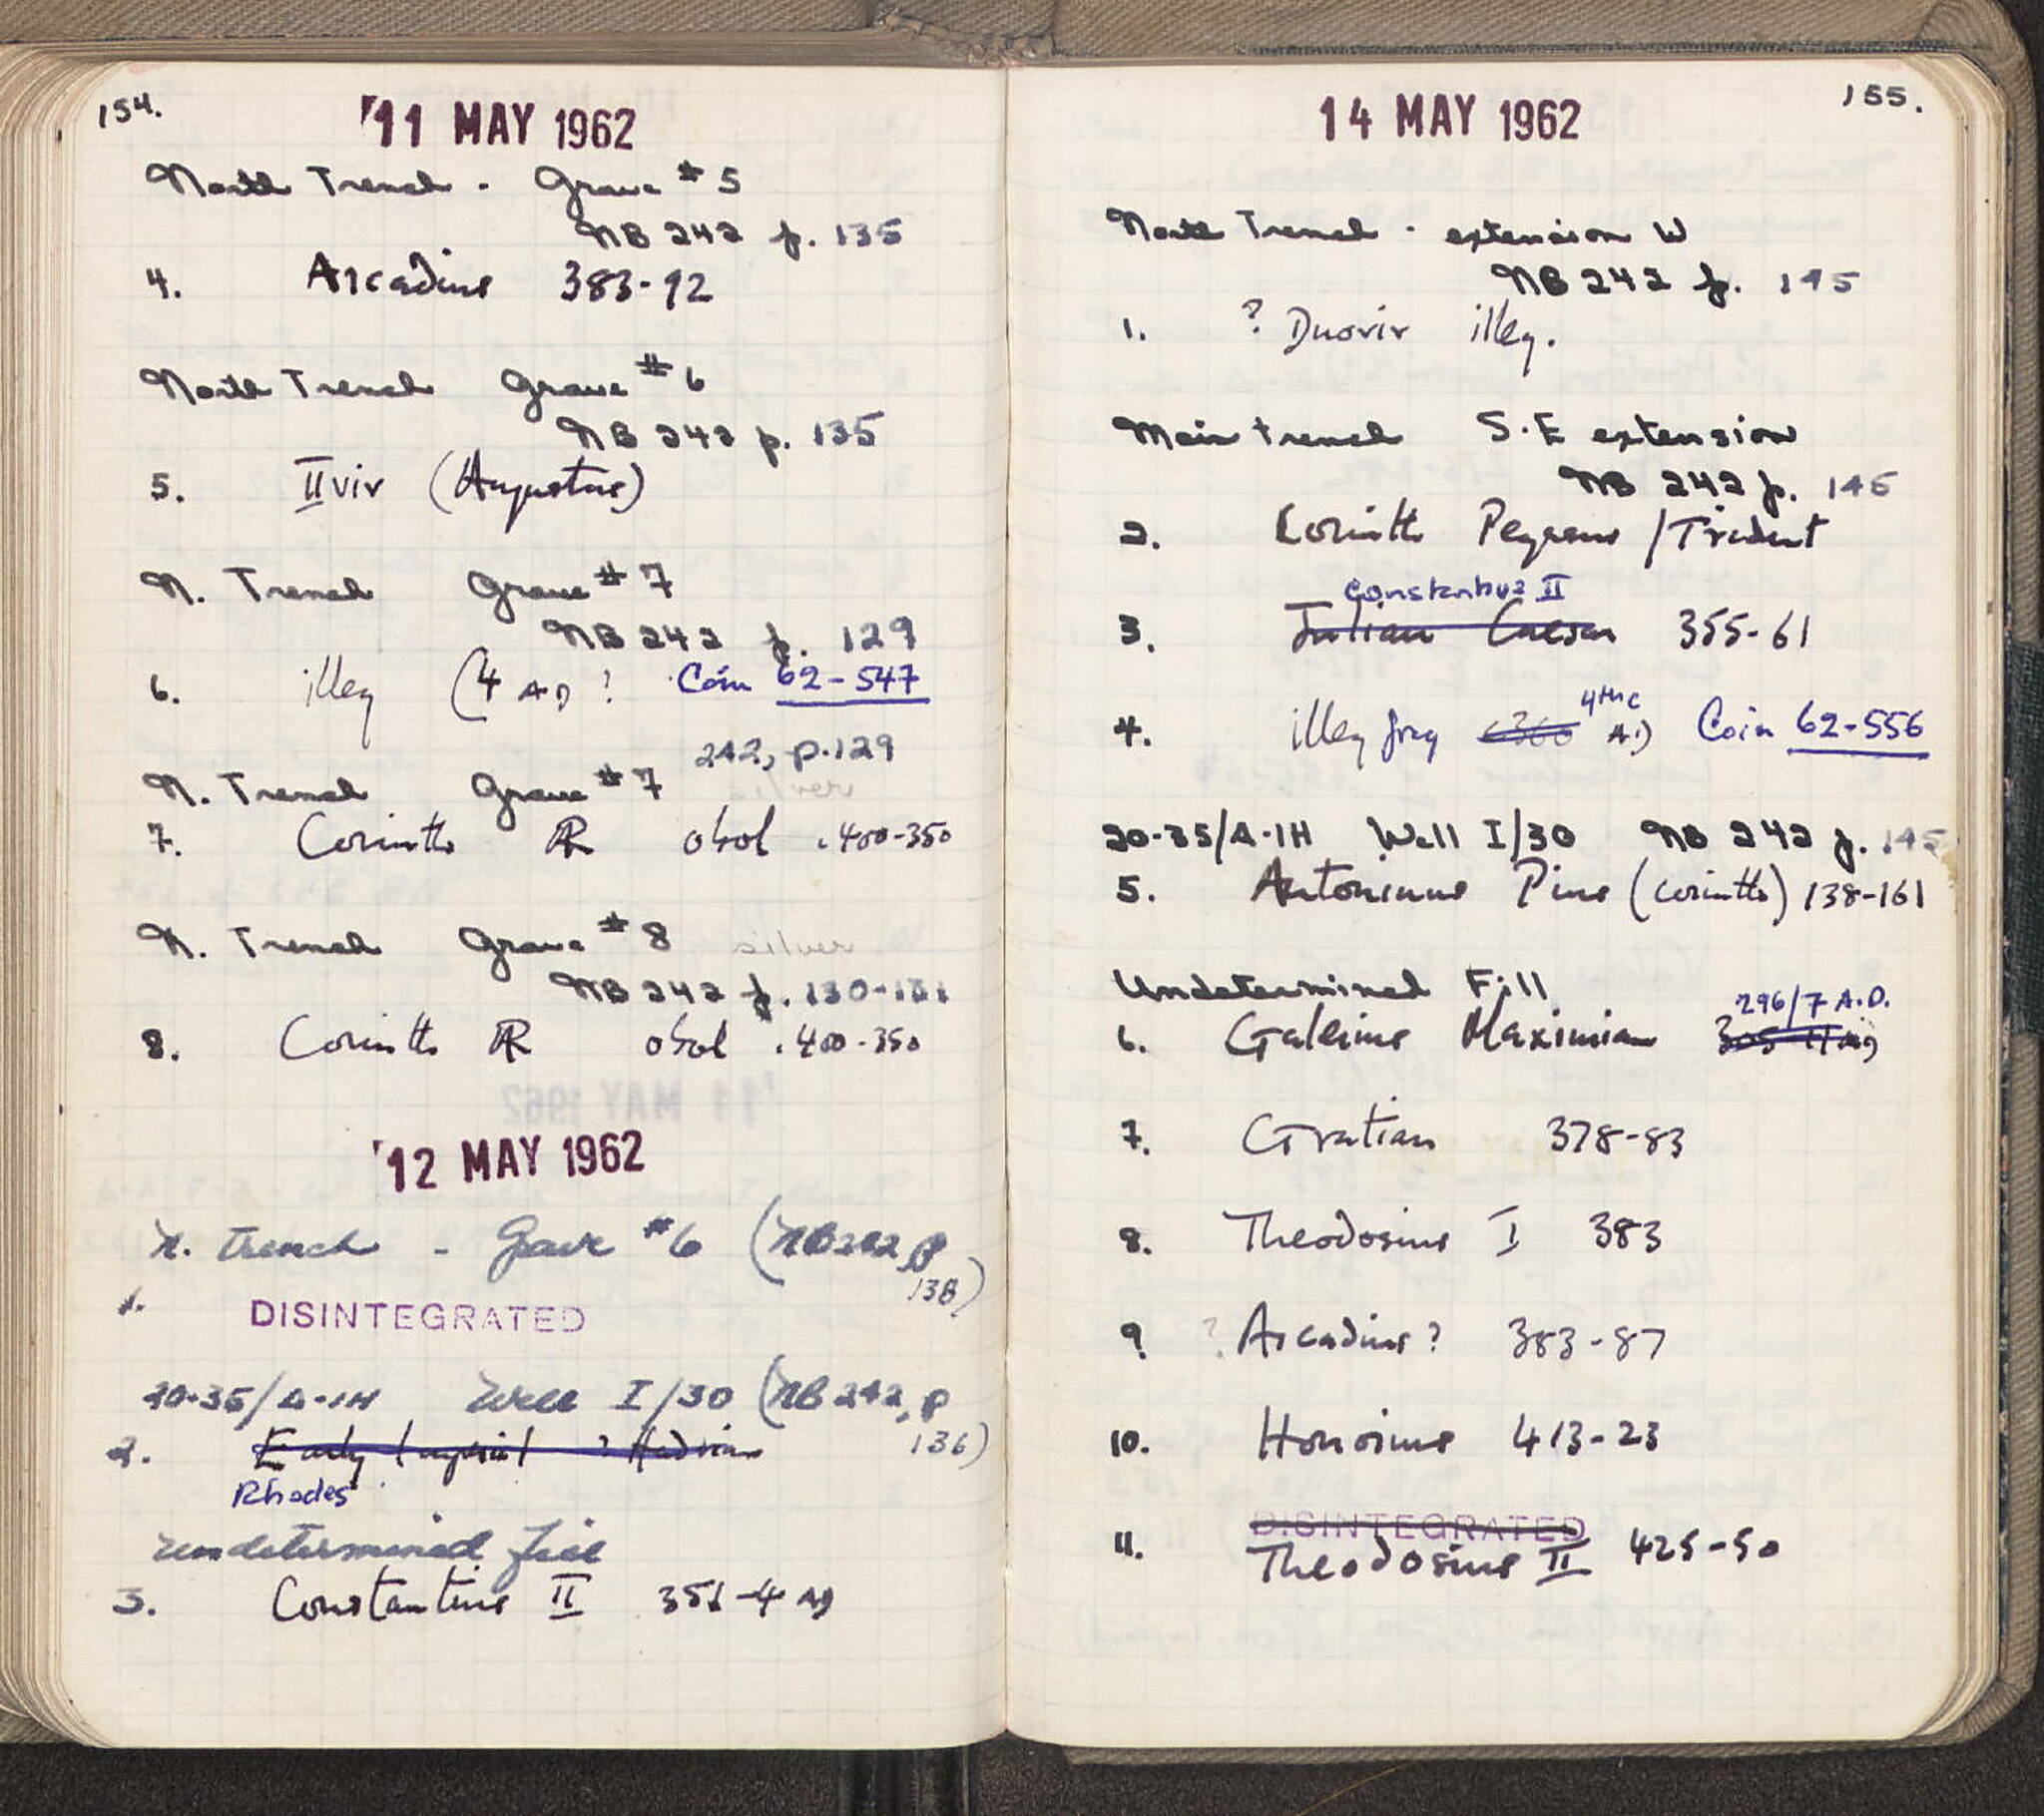 154.
11 MAY 1962
North Trench - Grave #5
NB 242 p. 135
4. Arcadius 383-92
North Trench Grave #6
NB 242 p. 135
5. IIvir (Augustus)
N. Trench Grave #7
NB 242 p. 129
6. illeg (4 AD ? Coin 62-547
242, p.129
N. Trench Grave #7 silver
7. Corinth AR obol .400-350
N. Trench Grave #8 silver
NB 242 p. 130-131
8. Corinth AR obol .400-350
12 MAY 1962
N. trench - Grave #6 (NB242 p
138)
1. DISINTEGRATED
30-35/A-1H Well I/30 (NB 242, p
136)
2. Early Imperial ? Hadrian
Rhodes
Undetermined fill
3. Constantius II 351-4 AD
155.
14 MAY 1962
North Trench - extension W
NB 242 p. 145
1. ? Duovir illeg.
Main trench S.E extension
NB 242 p. 145
2. Corinth Pegasus / Trident
Constantius II
3. Julian Caesar 355-61
4thc
4. illeg frag c360 AD Coin 62-556
30-35/A-1H Well I/30 NB 242 p. 145
5. Antoninus Pius (Corinth) 138-161
Undetermined Fill
296/7 A.D.
6. Galerius Maximian 305-11 AD
7. Gratian 378-83
8. Theodosius I 383
9. ? Arcadius? 383-87
10. Honorius 413-23
DISINTEGRATED
11. Theodosius II 425-50